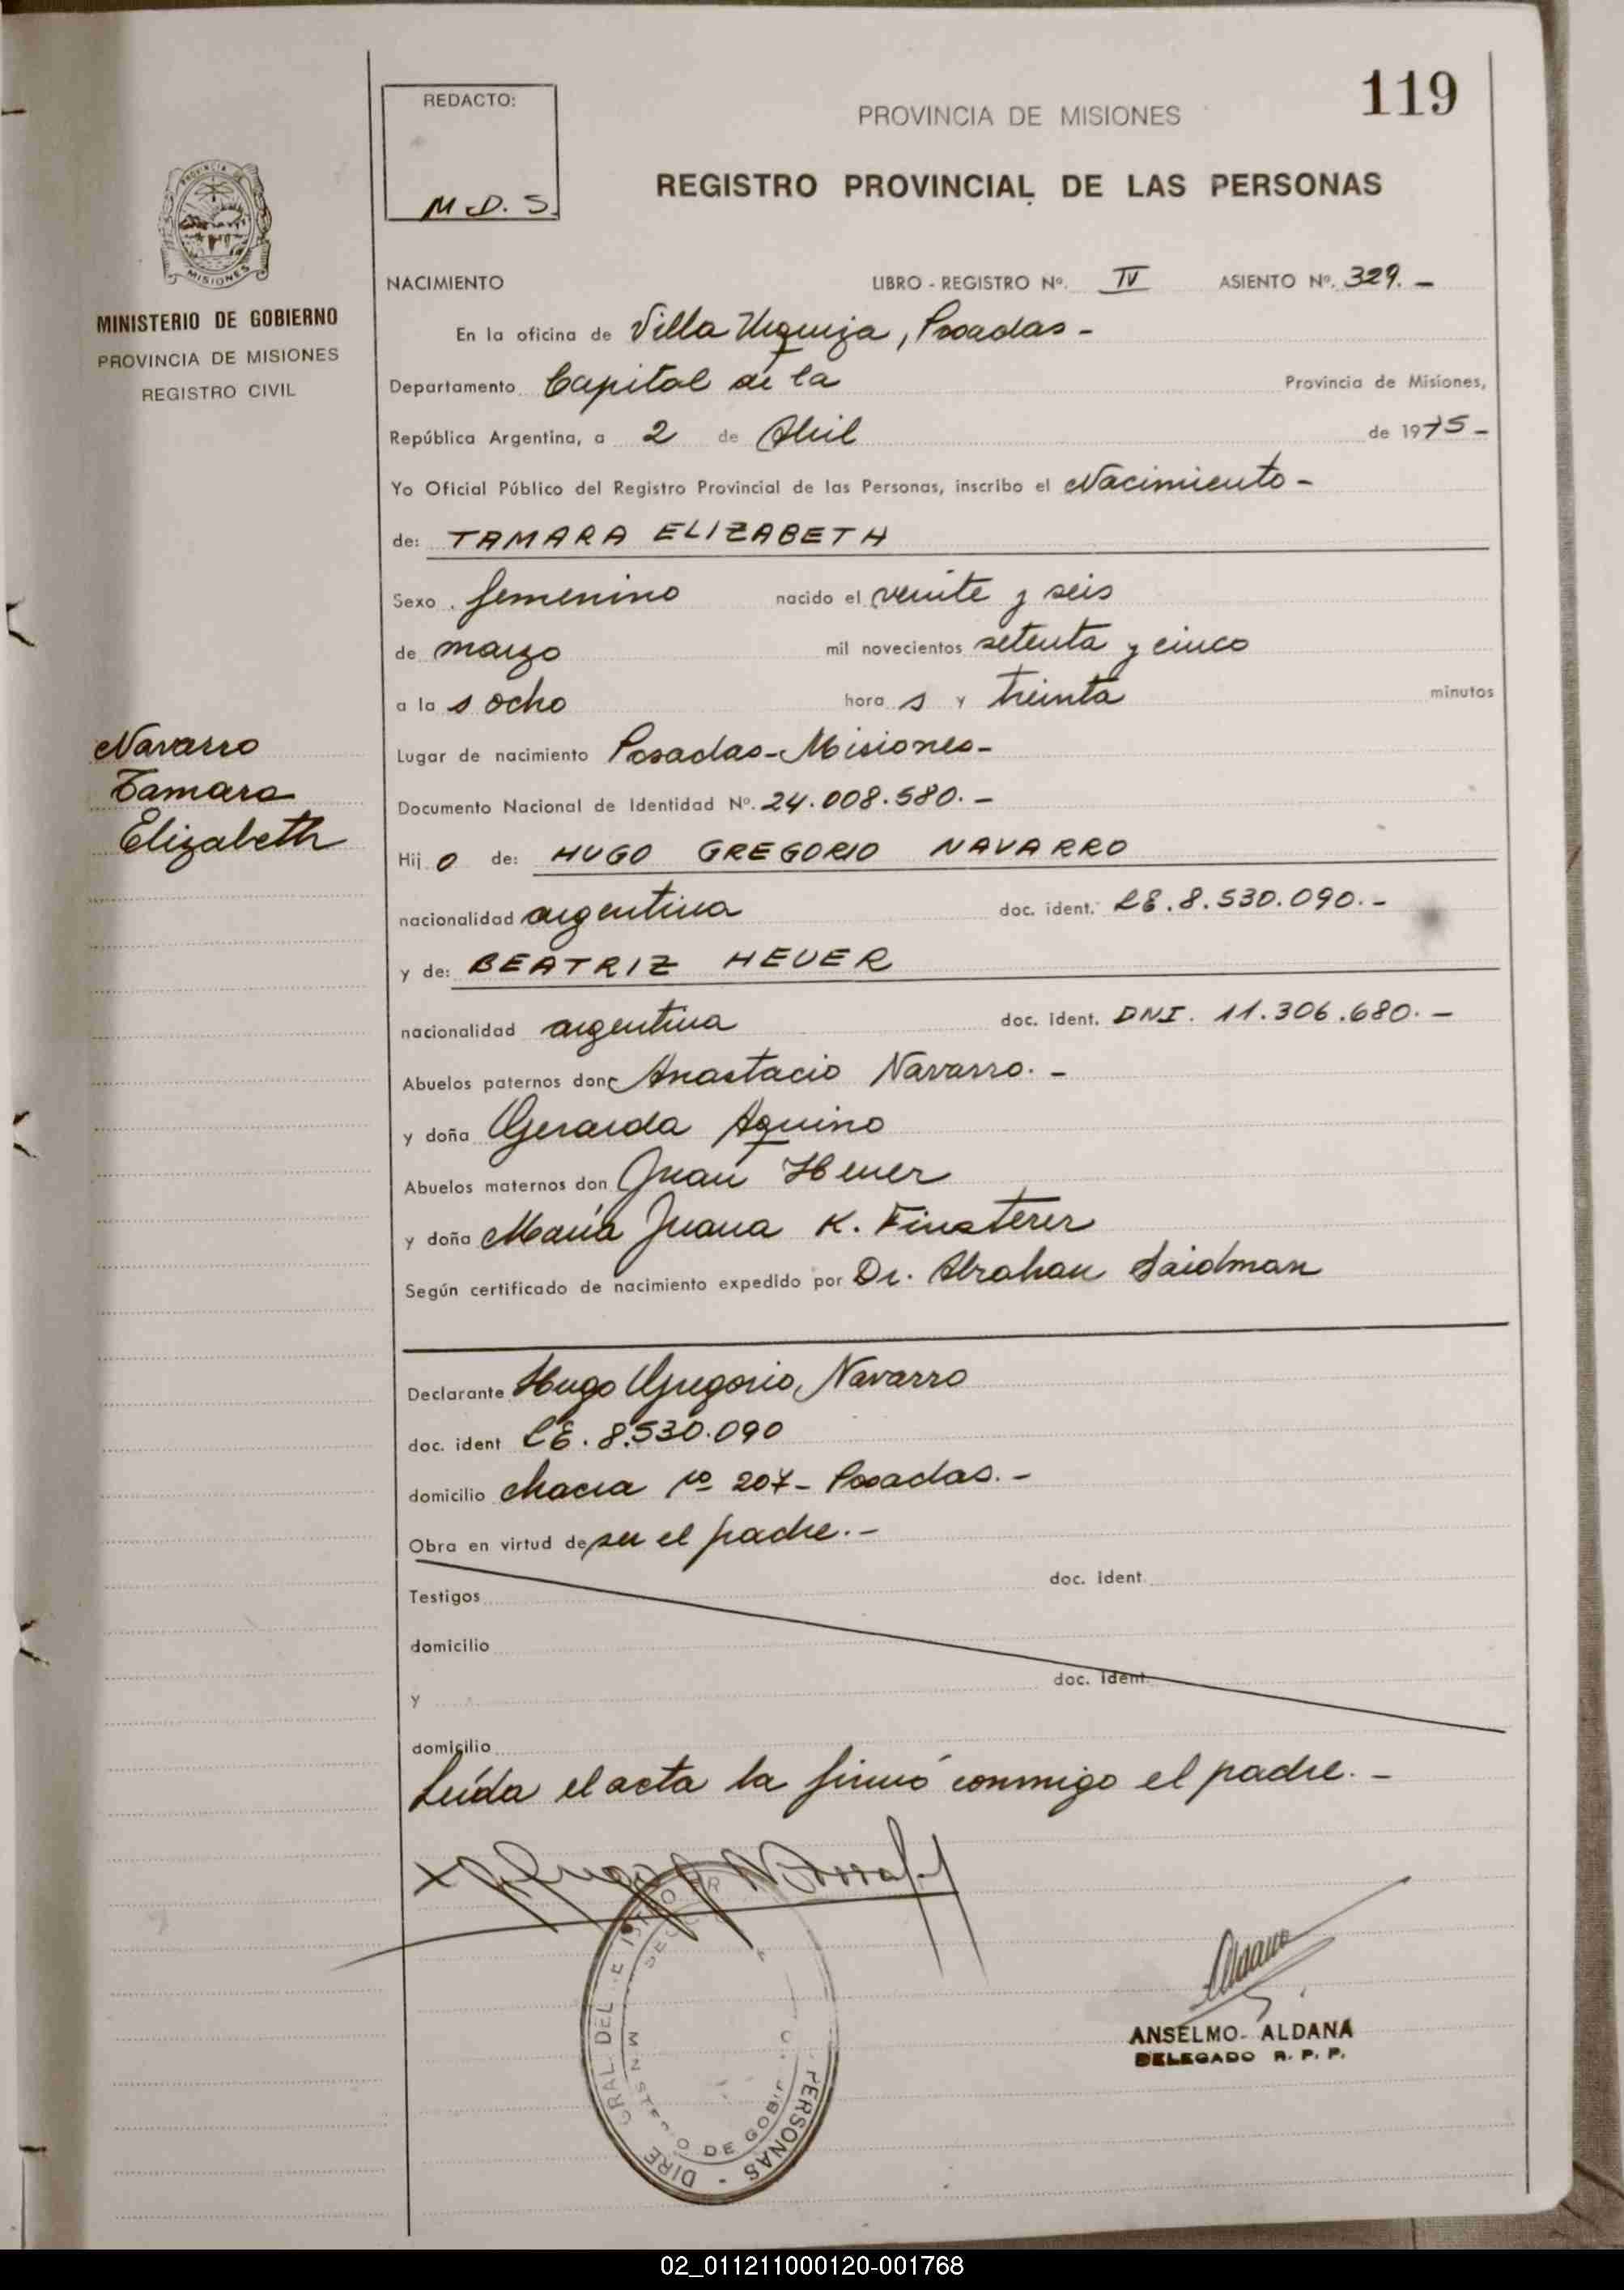 119
REDACTO:
M.D.S.
PROVINCIA DE MISIONES
REGISTRO PROVINCIAL DE LAS PERSONAS
PROVINCIA DE
MISIONES
MINISTERIO DE GOBIERNO
PROVINCIA DE MISIONES
REGISTRO CIVIL
NACIMIENTO LIBRO - REGISTRO Nº. IV ASIENTO Nº. 329. -
En la oficina de Villa Urquiza, Posadas -
Departamento Capital de la Provincia de Misiones,
República Argentina, a 2 de Abril de 1975 -
Yo Oficial Público del Registro Provincial de las Personas, inscribo el Nacimiento -
de: TAMARA ELIZABETH
Sexo femenino nacido el veinte y seis
de marzo mil novecientos setenta y cinco
a la s ocho hora s y treinta minutos
Navarro
Tamara
Elizabeth
Lugar de nacimiento Posadas - Misiones -
Documento Nacional de Identidad Nº. 24.008.580. -
Hij o de: HUGO GREGORIO NAVARRO
nacionalidad argentina doc. ident. LE. 8.530.090. -
y de: BEATRIZ HEUER
nacionalidad argentina doc. ident. DNI. 11.306.680. -
Abuelos paternos don Anastacio Navarro. -
y doña Gerarda Aquino
Abuelos maternos don Juan Heuer
y doña María Juana K. Finsterer
Según certificado de nacimiento expedido por Dr. Abrahan Saidman
Declarante Hugo Gregorio Navarro
doc. ident LE. 8.530.090
domicilio Chacra Nº 207 - Posadas. -
Obra en virtud de ser el padre. -
Testigos doc. ident.
domicilio
y doc. ident.
domicilio
Leída el acta la firmó conmigo el padre. -
MINISTERIO DE GOBIERNO
PERSONAS
Aldana
ANSELMO ALDANA
DELEGADO R. P. P.
02_011211000120-001768